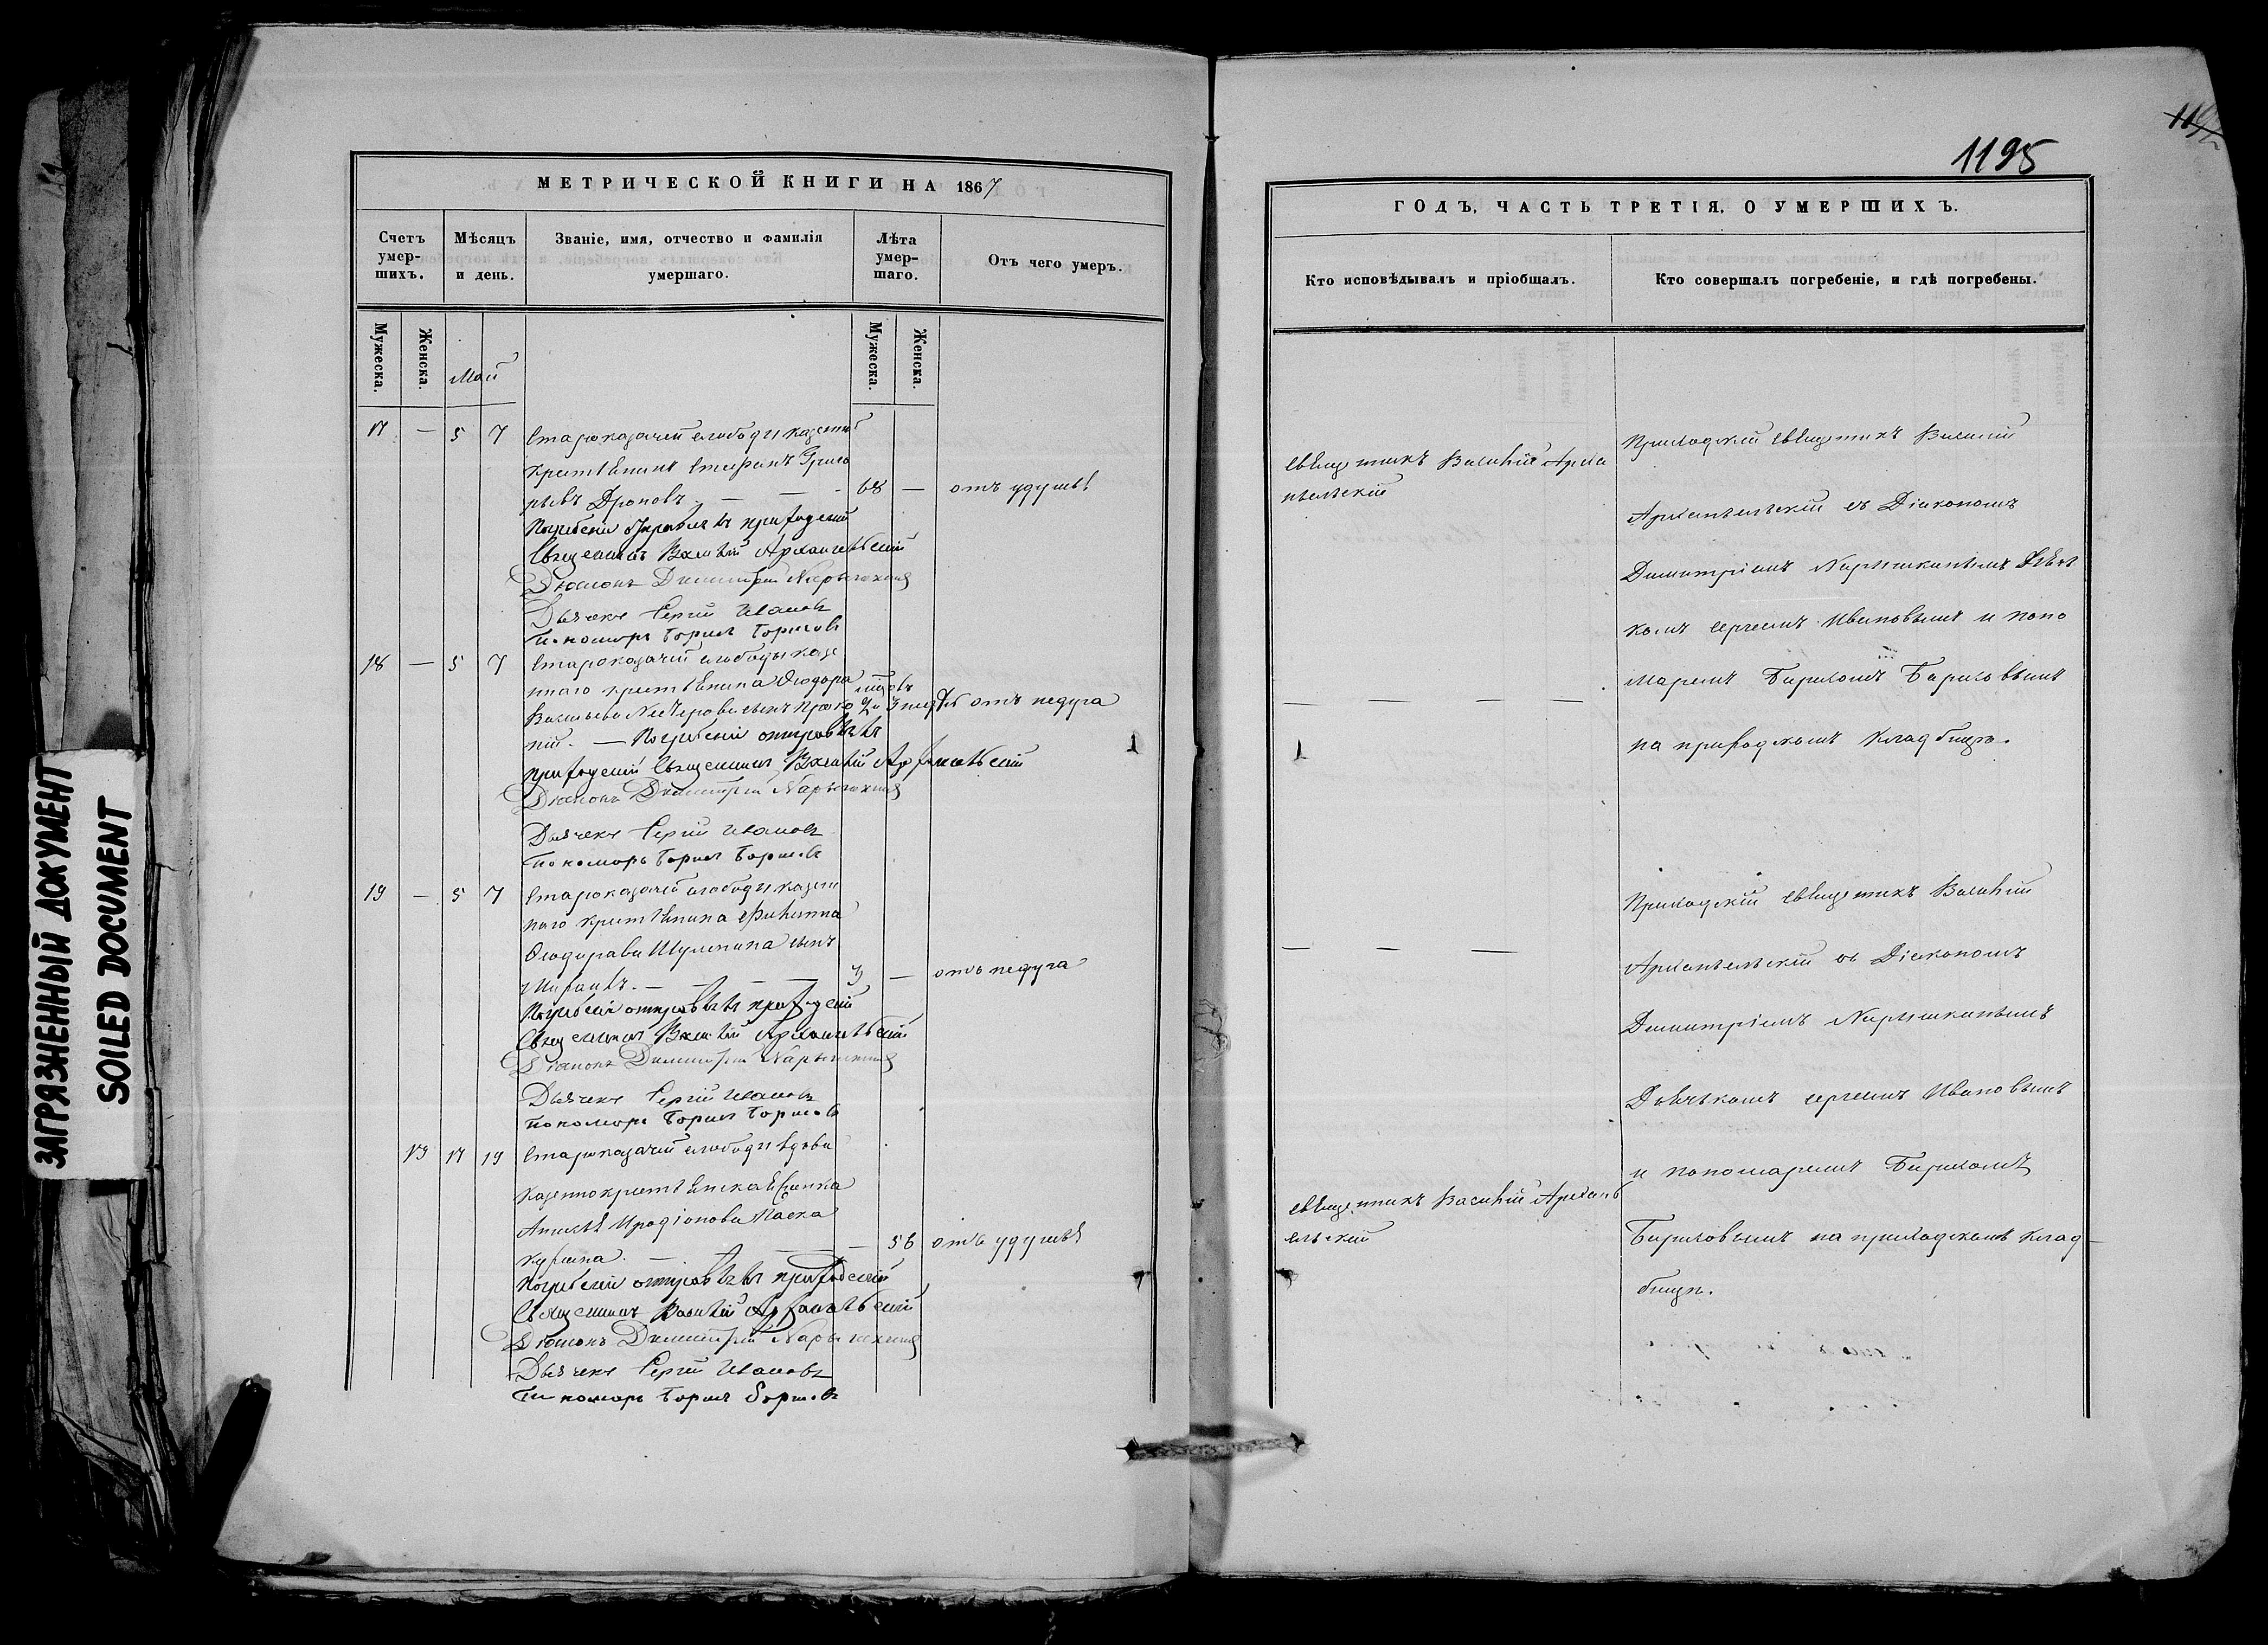 ЗАГРЯЗНЕННЫЙ ДОКУМЕНТ
SOILED DOCUMENT
МЕТРИЧЕСКОЙ КНИГИ НА 1867
Счетъ умер-шихъ.
Мѣсяцъ и день.
Званіе, имя, отчество и фамилія умершаго.
Лѣта умер-шаго.
Отъ чего умеръ.
Мужеска.
Женска.
Май
Мужеска.
Женска.
17 — 5 7 Староказачей слободы казенный
крестьянинъ Стефанъ Григо
рьевъ Дроновъ. — — - 68 — отъ удушья
Погребеніе отправлялъ приходскій
Священникъ Василій Архангельскій
Діаконъ Димитрій Нарышкинъ
Дьячекъ Сергій Ивановъ
Пономарь Борисъ Борисовъ
18 — 5 7 Староказачей слободы казе
ннаго крестьянина Ѳеодора
Васильева сынъ отъ недуга
— Погребеніе отправлялъ
приходскій Священникъ Василій Архангельскій
Діаконъ Димитрій Нарышкинъ
Дьячекъ Сергій Ивановъ
Пономарь Борисъ Борисовъ
19 — 5 7 Староказачей слободы казен
наго крестьянина Филиппа
Ѳеодорова Шуленина сынъ
— — — — 3 — отъ недуга
Погребеніе отправлялъ приходскій
Священникъ Василій Архангельскій
Діаконъ Димитрій Нарышкинъ
Дьячекъ Сергій Ивановъ
Пономарь Борисъ Борисовъ
13 17 19 Староказачей слободы вдова
Иродіонова
— — — — 56 отъ удушья
Погребеніе отправлялъ приходскій
Священникъ Василій Архангельскій
Діаконъ Димитрій Нарышкинъ
Дьячекъ Сергій Ивановъ
Пономарь Борисъ Борисовъ
1195
ГОДЪ, ЧАСТЬ ТРЕТІЯ, О УМЕРШИХЪ.
Кто исповѣдывалъ и пріобщалъ.
Кто совершалъ погребеніе, и гдѣ погребены.
священникъ Василій Арха
нгельскій
Приходскій священникъ Василій
Архангельскій съ Діакономъ
Димитріемъ Нарышкинымъ Дьяч
комъ Сергеемъ Ивановымъ и поно
маремъ Борисомъ Борисовымъ
— — — —
на приходскомъ кладбищѣ.
Приходскій священникъ Василій
— — —
Архангельскій съ Діакономъ
Димитріемъ Нарышкинымъ
Дьячкомъ Сергеемъ Ивановымъ
и пономаремъ Борисомъ
священникъ Василій Арханг
ельскій
Борисовымъ на приходскомъ клад-
бищѣ.